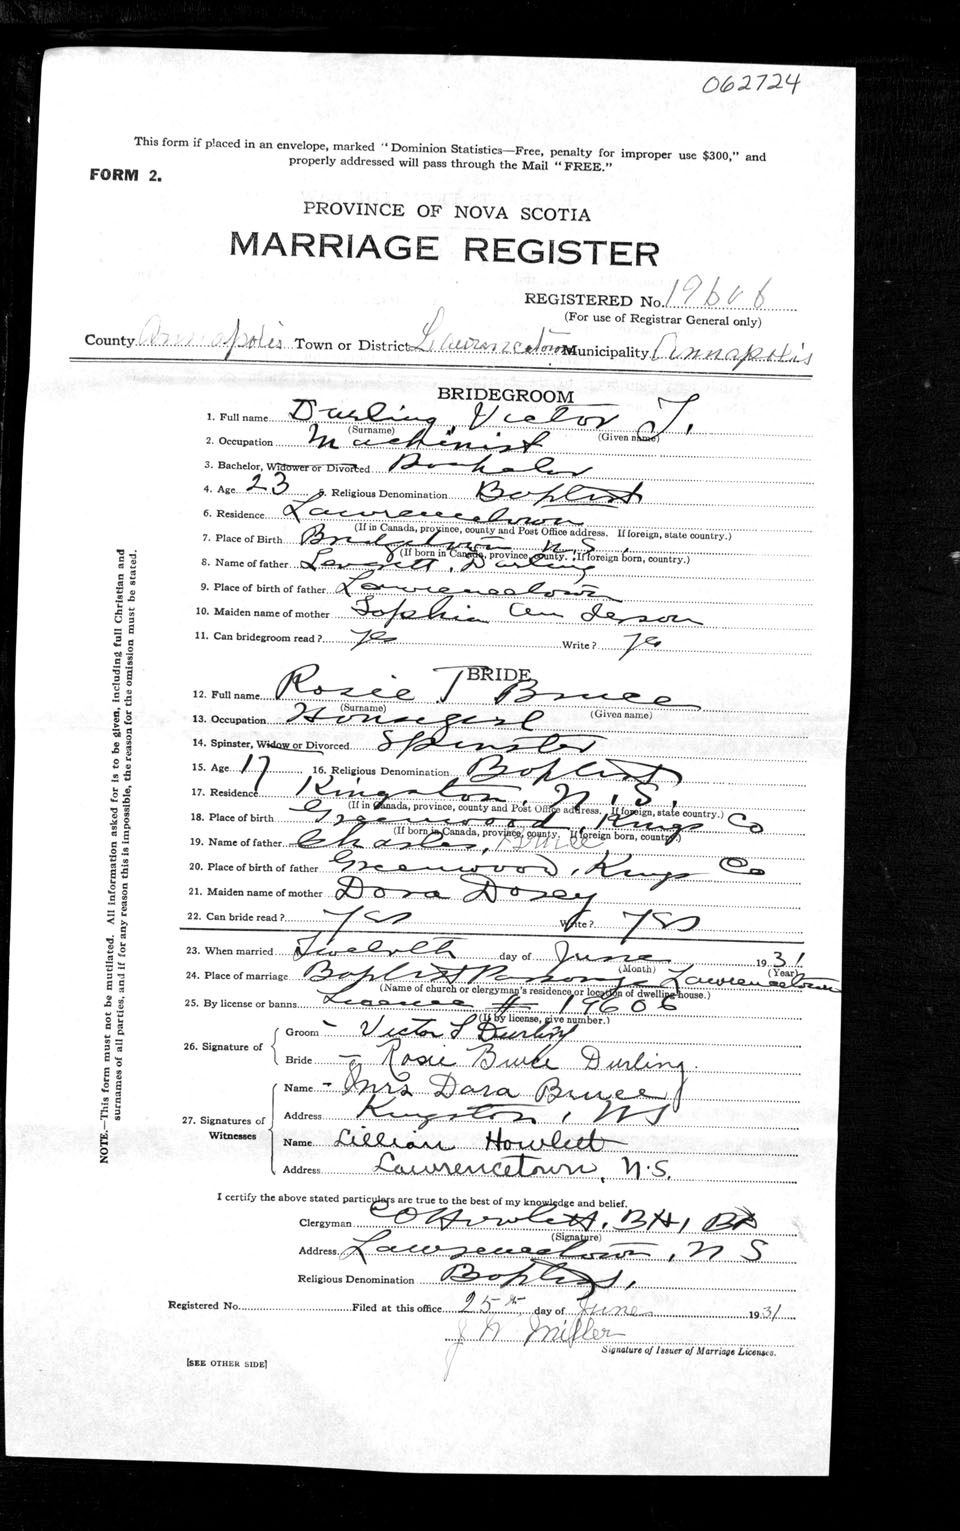 062724
This form if placed in an envelope, marked "Dominion Statistics—Free, penalty for improper use $300," and
properly addressed will pass through the Mail "FREE."
FORM 2.
PROVINCE OF NOVA SCOTIA
MARRIAGE REGISTER
REGISTERED No. 19606
(For use of Registrar General only)
County Annapolis Town or District Lawrencetown Municipality Annapolis
BRIDEGROOM
1. Full name Durling, Victor
(Surname) (Given name)
2. Occupation Machinist
3. Bachelor, Widower or Divorced Bachelor
4. Age 23 5. Religious Denomination Baptist
6. Residence Lawrencetown
(If in Canada, province, county and Post Office address. If foreign, state country.)
7. Place of Birth Bridgetown N.S.
(If born in Canada, province, county. If foreign born, country.)
8. Name of father Leverett, Durling
9. Place of birth of father Lawrencetown
10. Maiden name of mother Sophia Anderson
11. Can bridegroom read? yes Write? yes
BRIDE
12. Full name Rosie T Bruce
(Surname) (Given name)
13. Occupation Housegirl
14. Spinster, Widow or Divorced Spinster
15. Age 17 16. Religious Denomination Baptist
17. Residence Kingston, N.S.
(If in Canada, province, county and Post Office address. If foreign, state country.)
18. Place of birth Greenwood, Kings Co
(If born in Canada, province, county. If foreign born, country.)
19. Name of father Charles, Bruce
20. Place of birth of father Greenwood, Kings Co
21. Maiden name of mother Dora Dorey
22. Can bride read? yes Write? yes
23. When married Twelvth day of June 1931
(Month) (Year)
24. Place of marriage Baptist Parsonage Lawrencetown
(Name of church or clergyman's residence or location of dwelling house.)
25. By license or banns License # 19606
(If by license, give number.)
26. Signature of
Groom - Victor Durling
Bride - Rosie Bruce Durling.
27. Signatures of Witnesses
Name - Mrs Dora Bruce
Address Kingston, NS
Name Lillian Howlett
Address Lawrencetown, N.S.
I certify the above stated particulars are true to the best of my knowledge and belief.
Clergyman C O Howlett,
(Signature)
Address Lawrencetown, N S
Religious Denomination Baptist.
Registered No. Filed at this office 25th day of June 1931
Miller
Signature of Issuer of Marriage Licenses.
[SEE OTHER SIDE]
NOTE.—This form must not be mutilated. All information asked for is to be given, including full Christian and
surnames of all parties, and if for any reason this is impossible, the reason for the omission must be stated.